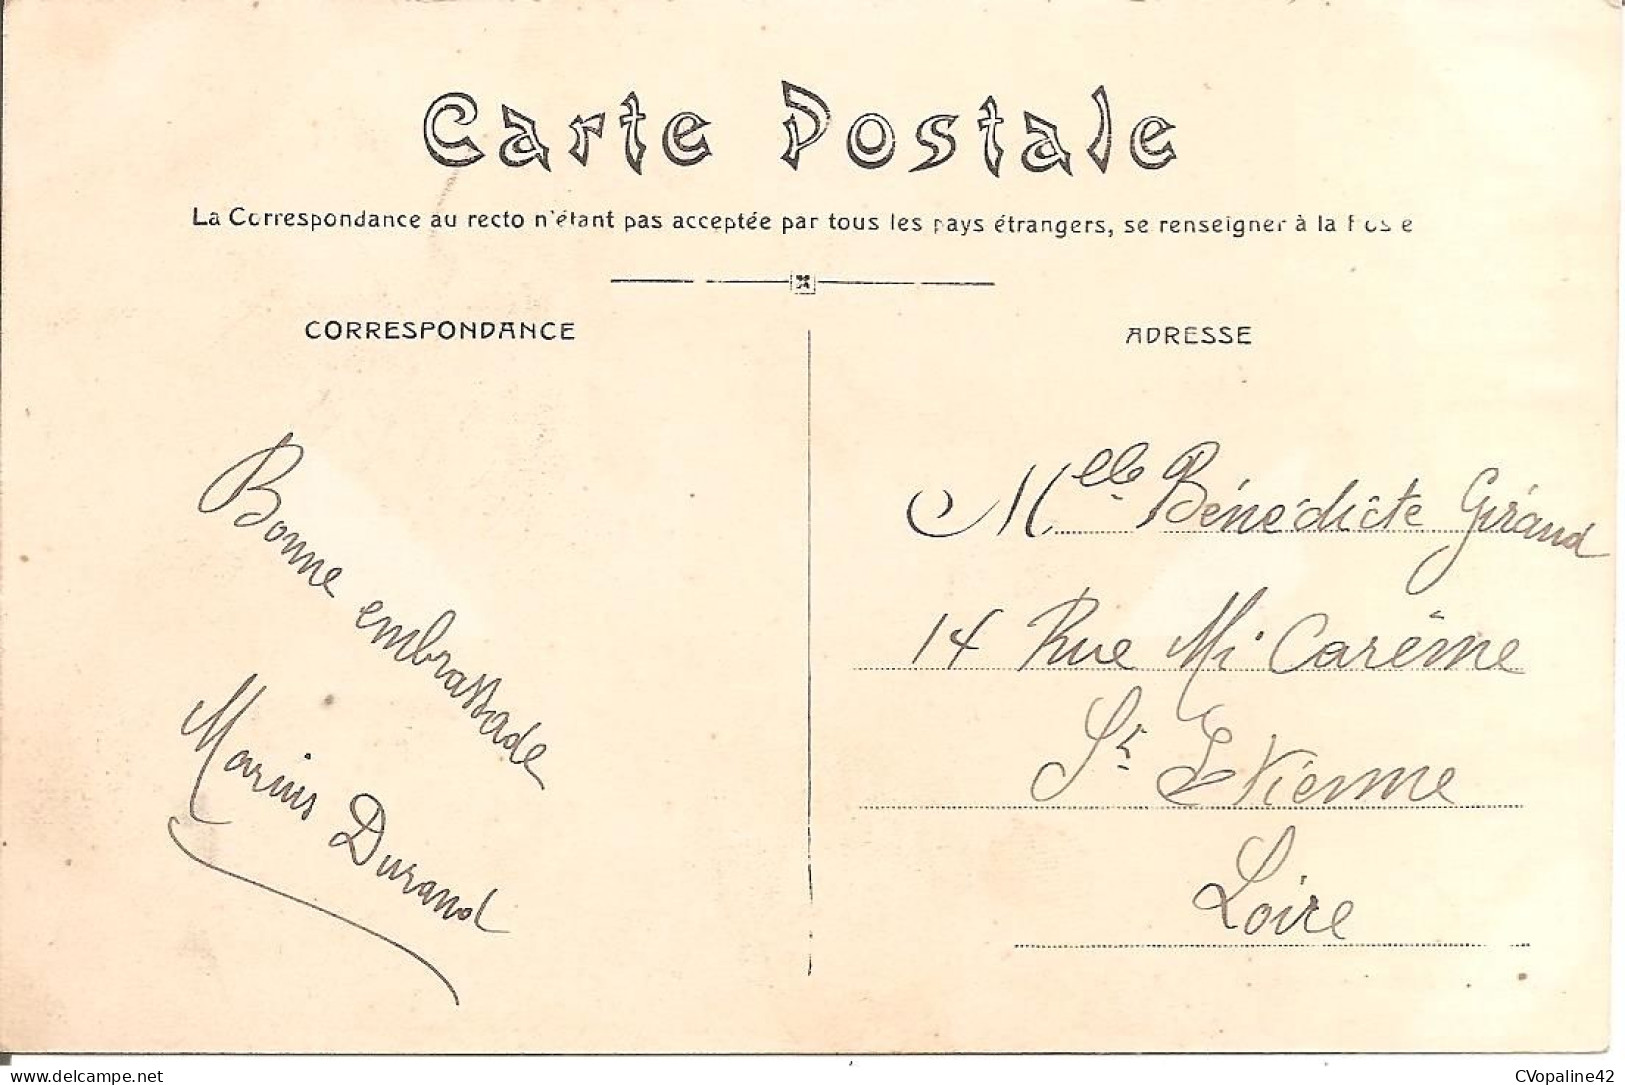 Carte Postale
La Correspondance au recto n'étant pas acceptée par tous les pays étrangers, se renseigner à la Poste
CORRESPONDANCE
Bonne embrassade
Marius Durand
ADRESSE
Melle Bénédicte Giraud
14 Rue Mi Carême
St Etienne
Loire
website: www.delcampe.net
CVopaline42